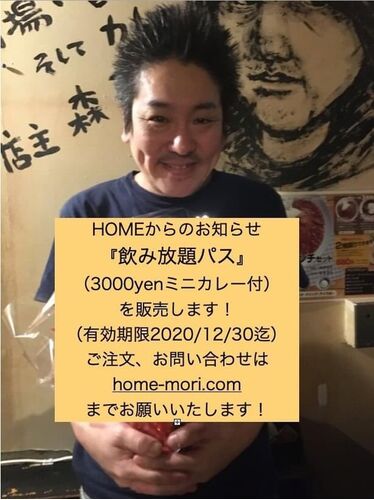 場
そして
森
店主
HOMEからのお知らせ
『飲み放題パス』
（3000yenミニカレー付）
を販売します！
（有効期限2020/12/30迄）
ご注文、お問い合わせは
home-mori.com
までお願いいたします！